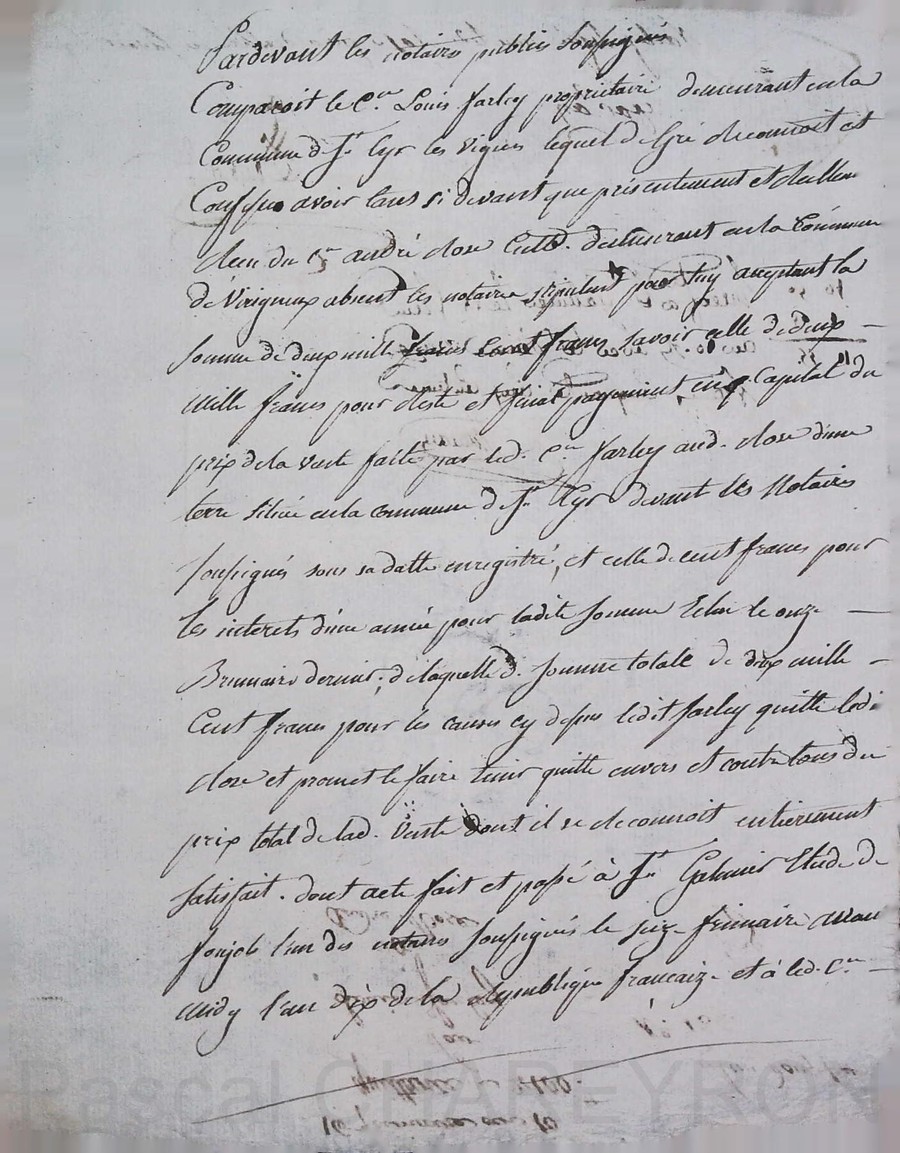 Pardevant les notaires publics soussignés
Comparoit le C.en Louis Farley propriétaire demeurant en la
Commune de St Cyr les vignes lequel de gré reconnoit et
Confesse avoir reçus si devant que présentement et réellem
du C.en andré rose Cultr. demeurant en la Commune
de Virigneux absent les notaires stipulant pour luy acceptant la
somme de deux mille cent francs savoir celle de deux
mille francs pour reste et final payement en Capital du
prix de la vente faite par led. C.en Farley aud. rose d'une
terre située en la commune de St Cyr devant les Notaires
soussignés sous sa datte enregistré, et celle de cent francs pour
les interets d'une année pour ladite somme Echu le onze
Brumaire dernier; de laquelle d. somme totale de deux mille
Cent francs pour les causes cy dessus ledit Farley quitte ledi
rose et promet le faire tenir quitte envers et contre tous du
prix total de lad. Vente dont il se reconnoit entierement
satisfait. dont acte fait et passé à St Galmier Etude de
l'un des notaires soussignés le seize frimaire avant
midy l'an dix de la république française et à led. C.en
Pascal CHAREYRON